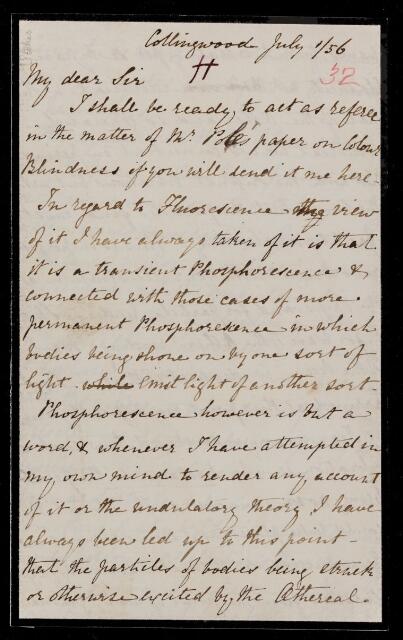 Collingwood July 1/56
H 32
My dear Sir
I shall be ready to act as referee
in the matter of Mr. Pole's paper on Colour
Blindness if you will send it me here -
In regard to Fluorescence the view
of it I have always taken of it is that
it is a transient Phosphorescence &
connected with those cases of more
permanent Phosphorescence in which
bodies being shone on by one sort of
light while emit light of another sort.
Phosphorescence however is but a
word, & whenever I have attempted in
my own mind to render any account
of it or the undulatory theory I have
always been led up to this point -
that the particles of bodies being struck
or otherwise excited by the Æthereal